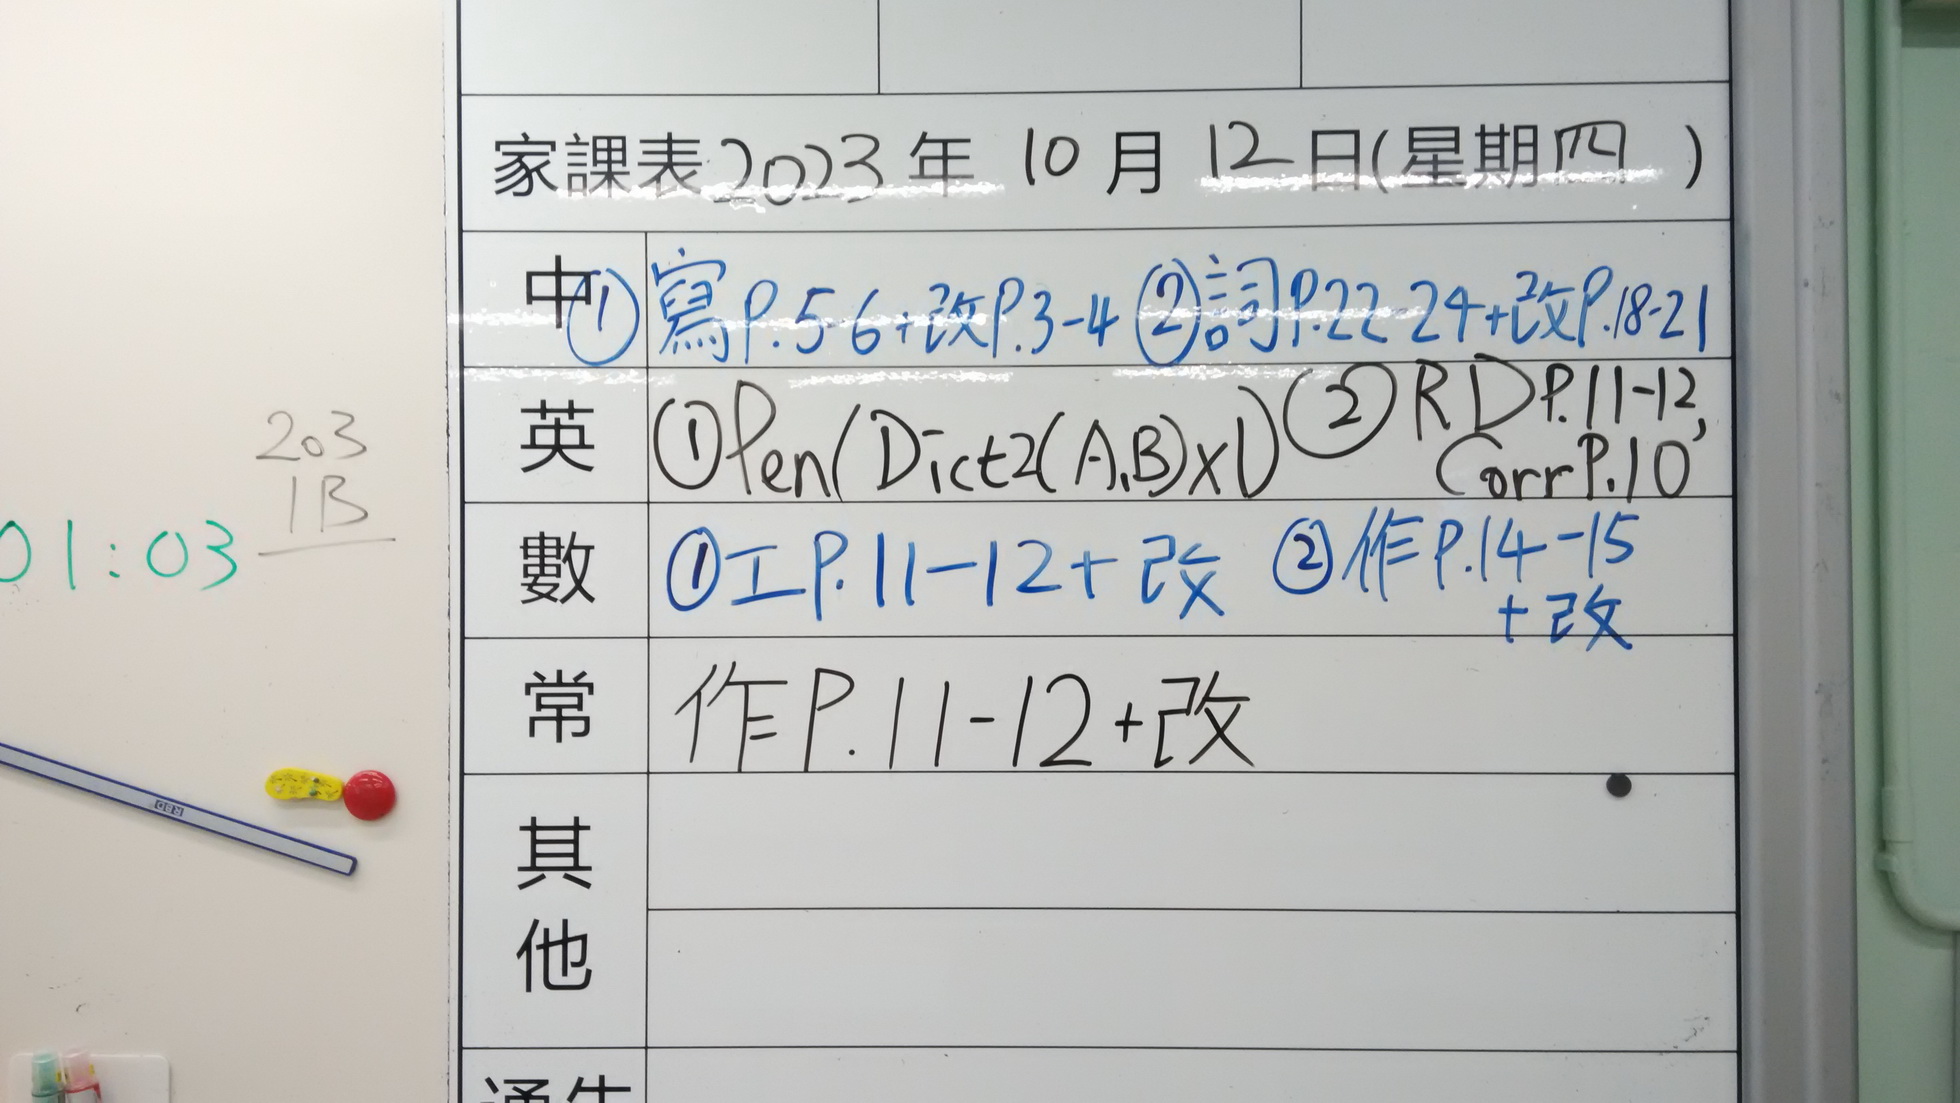 家課表2023年 10月 12日(星期四 )
中 ①寫P.5-6+改P.3-4 ②詞P.22-24+改P.18-21
英 ①Pen(Dict2(A,B)x1) ②RD P.11-12,
Corr P.10
數 ①工P.11-12+改 ②作P.14-15
+改
常 作P.11-12+改
其
他
203
1B
01:03